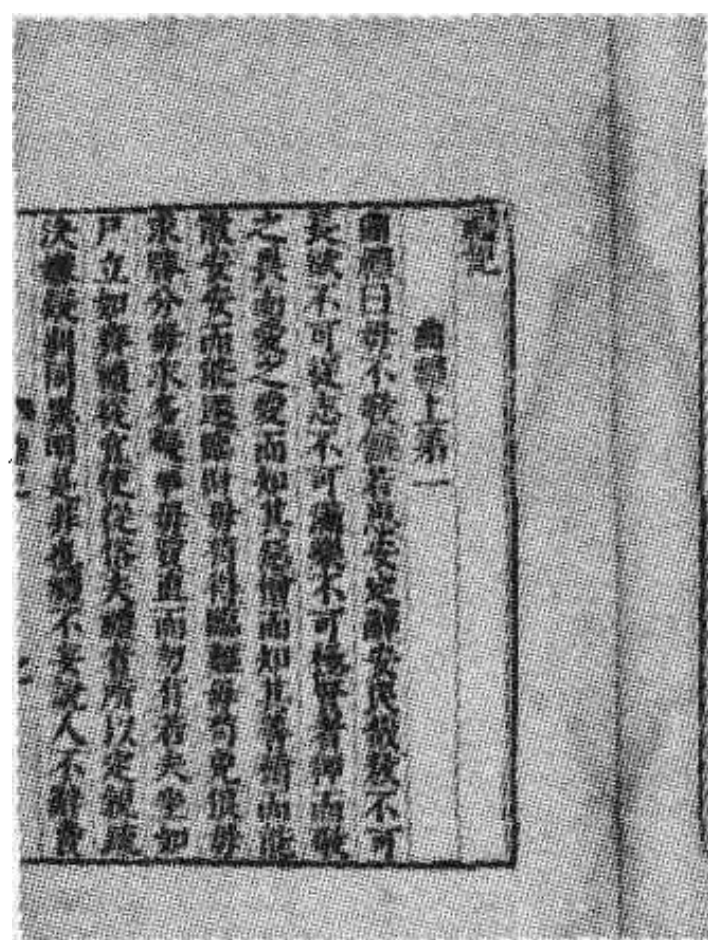 禮記
曲禮上第一
曲禮曰毋不敬儼若思安定辭安民哉敖不可
長欲不可從志不可滿樂不可極賢者狎而敬
之畏而愛之愛而知其惡憎而知其善積而能
散安安而能遷臨財毋苟得臨難毋苟免很毋
求勝分毋求多疑事毋質直而勿有若夫坐如
尸立如齊禮從宜使從俗夫禮者所以定親疏
決嫌疑別同異明是非也禮不妄說人不辭費